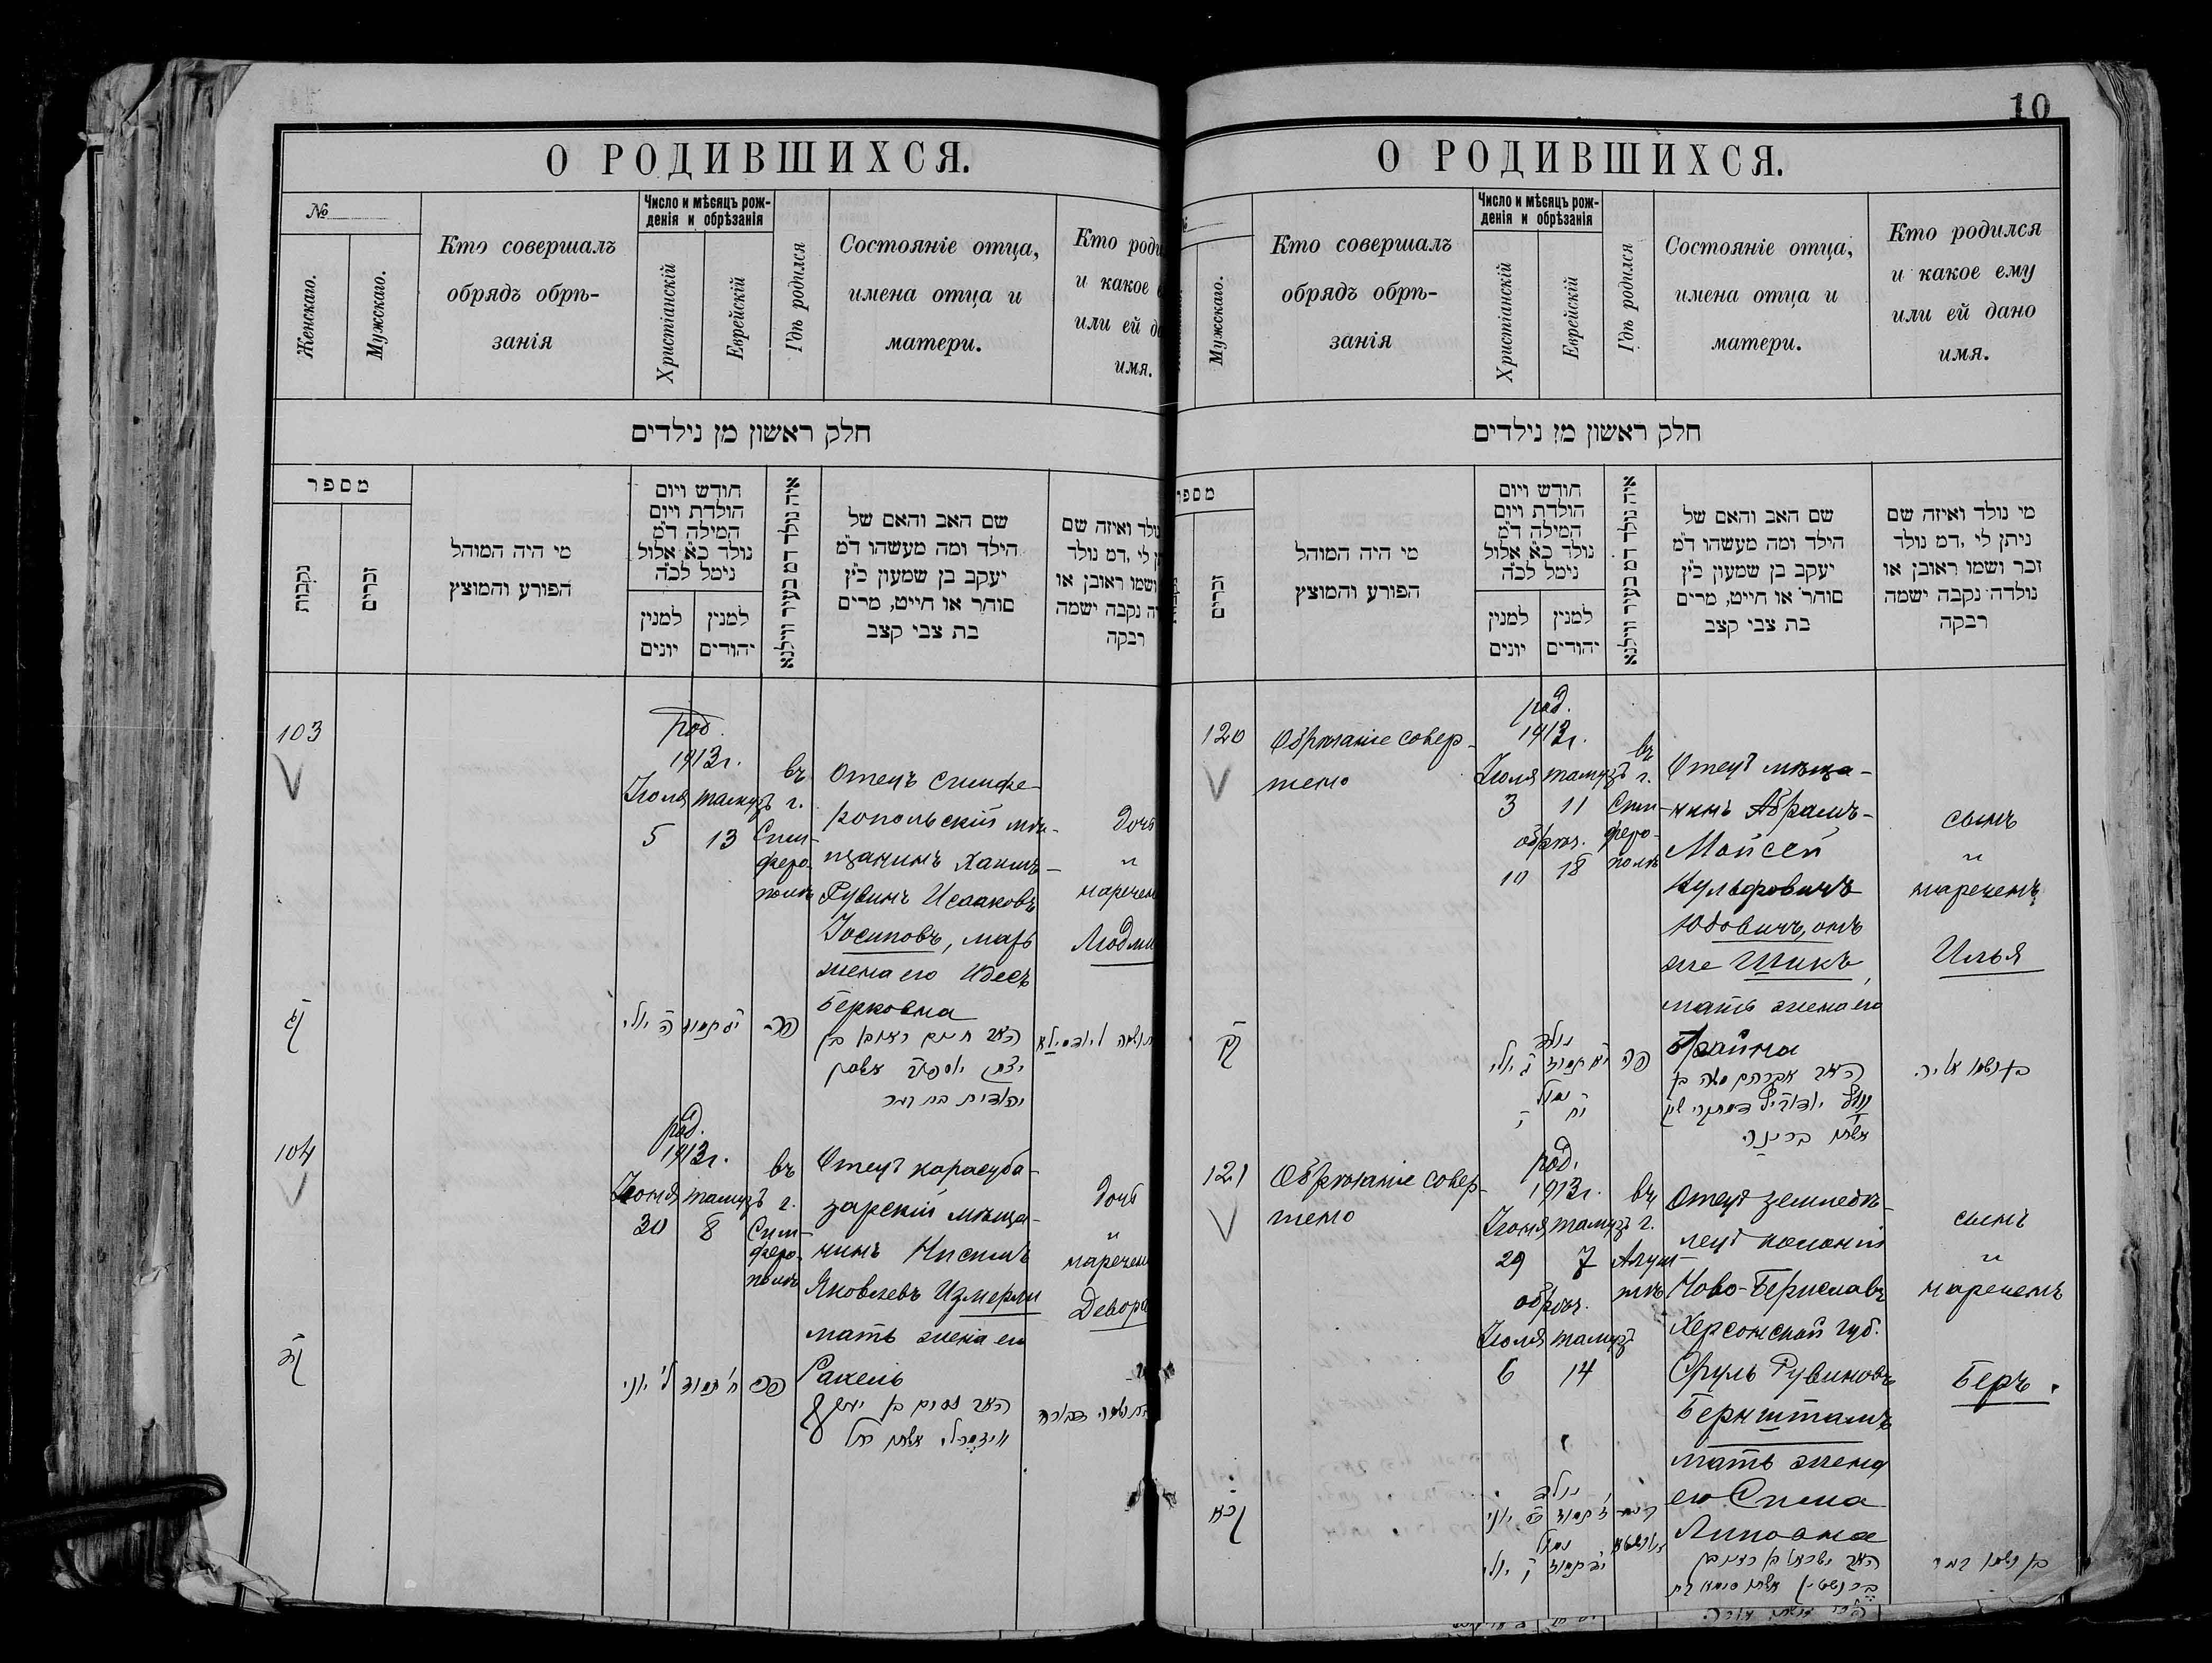 О РОДИВШИХСЯ.
№
Женскаго.
Мужскаго.
Кто совершалъ
обрядъ обрѣ-
занія
Число и мѣсяцъ рож-
денія и обрѣзанія
Христіанскій
Еврейскій
Гдѣ родился
Состояніе отца,
имена отца и
матери.
Кто роди
и какое
или ей д
имя.
חלק ראשון מן נילדים
מספר
נקבות
זכרים
מי היה המוהל
הפורע והמוצץ
חודש ויום
הולדת ויום
המילה ד״מ
נולד כ״א אלול
נימל לכ״ה
למנין
יונים
למנין
יהודים
איה נולד דמ בעיר ווילנא
שם האב והאם של
הילד ומה מעשהו ד״מ
יעקב בן שמעון כ״ץ
סוחר או חייט, מרים
בת צבי קצב
נולד ואיזה שם
ן לי ,דמ נולד
ושמו ראובן או
ה נקבה ישמה
רבקה
103
род.
1913г.
Іюля тамузъ
5 13
въ
г.
Сим-
феро-
полѣ
Отецъ симфе-
ропольскій мѣ-
щанинъ Хаимъ-
Рувинъ Исааковъ
Іосиповъ, мать
жена его Идесъ
Берковна
дочь
"
наречен
Людми
קג
האב חיים ראובן בן
יצחק
יהודית בת
104
род.
1913г.
Іюня тамузъ
30 8
въ
г.
Сим-
феро-
полѣ
Отецъ карасуба-
зарскій мѣща-
нинъ Нисимъ
Яковлевъ Измерли
мать жена его
Рахель
дочь
"
наречен
Девора
קד
ח׳ תמוז ל׳ יוני
האב נסים בן יעקב
איזמרלי אשתו רחל
10
О РОДИВШИХСЯ.
Мужскаго.
Кто совершалъ
обрядъ обрѣ-
занія
Число и мѣсяцъ рож-
денія и обрѣзанія
Христіанскій
Еврейскій
Гдѣ родился
Состояніе отца,
имена отца и
матери.
Кто родился
и какое ему
или ей дано
имя.
חלק ראשון מן נילדים
מספר
זכרים
מי היה המוהל
הפורע והמוצץ
חודש ויום
הולדת ויום
המילה ד״מ
נולד כ״א אלול
נימל לכ״ה
למנין
יונים
למנין
יהודים
איה נולד דמ בעיר ווילנא
שם האב והאם של
הילד ומה מעשהו ד״מ
יעקב בן שמעון כ״ץ
סוחר או חייט, מרים
בת צבי קצב
מי נולד ואיזה שם
ניתן לי ,דמ נולד
זכר ושמו ראובן או
נולדה נקבה ישמה
רבקה
120
Обрѣзаніе совер-
шено
род.
1913г.
Іюля тамузъ
3 11
обрѣз.
10 18
въ
г.
Сим-
феро-
полѣ
Отецъ мѣща-
нинъ Абрамъ-
Мойсей
Вульфовичъ
Юдовичъ, онъ
же Шикъ,
мать жена его
Брайна
сынъ
"
нареченъ
Илья
קכ
נולד
נמול
האב אברהם משה בן
אשתו בריינה
בן ושמו אליה
121
Обрѣзаніе совер-
шено
род.
1913г.
Іюня тамузъ
29 7
обрѣз.
Іюля тамузъ
6 14
въ
г.
Алуш-
тѣ
Отецъ земледѣ-
лецъ колоніи
Ново-Бериславъ
Херсонской губ.
Сруль Рувиновъ
Бернштамъ
мать жена
его Сима
Липовна
сынъ
"
нареченъ
Беръ.
קכא
נולד
נמול
האב ישראל בן ראובן
אשתו סימא בת